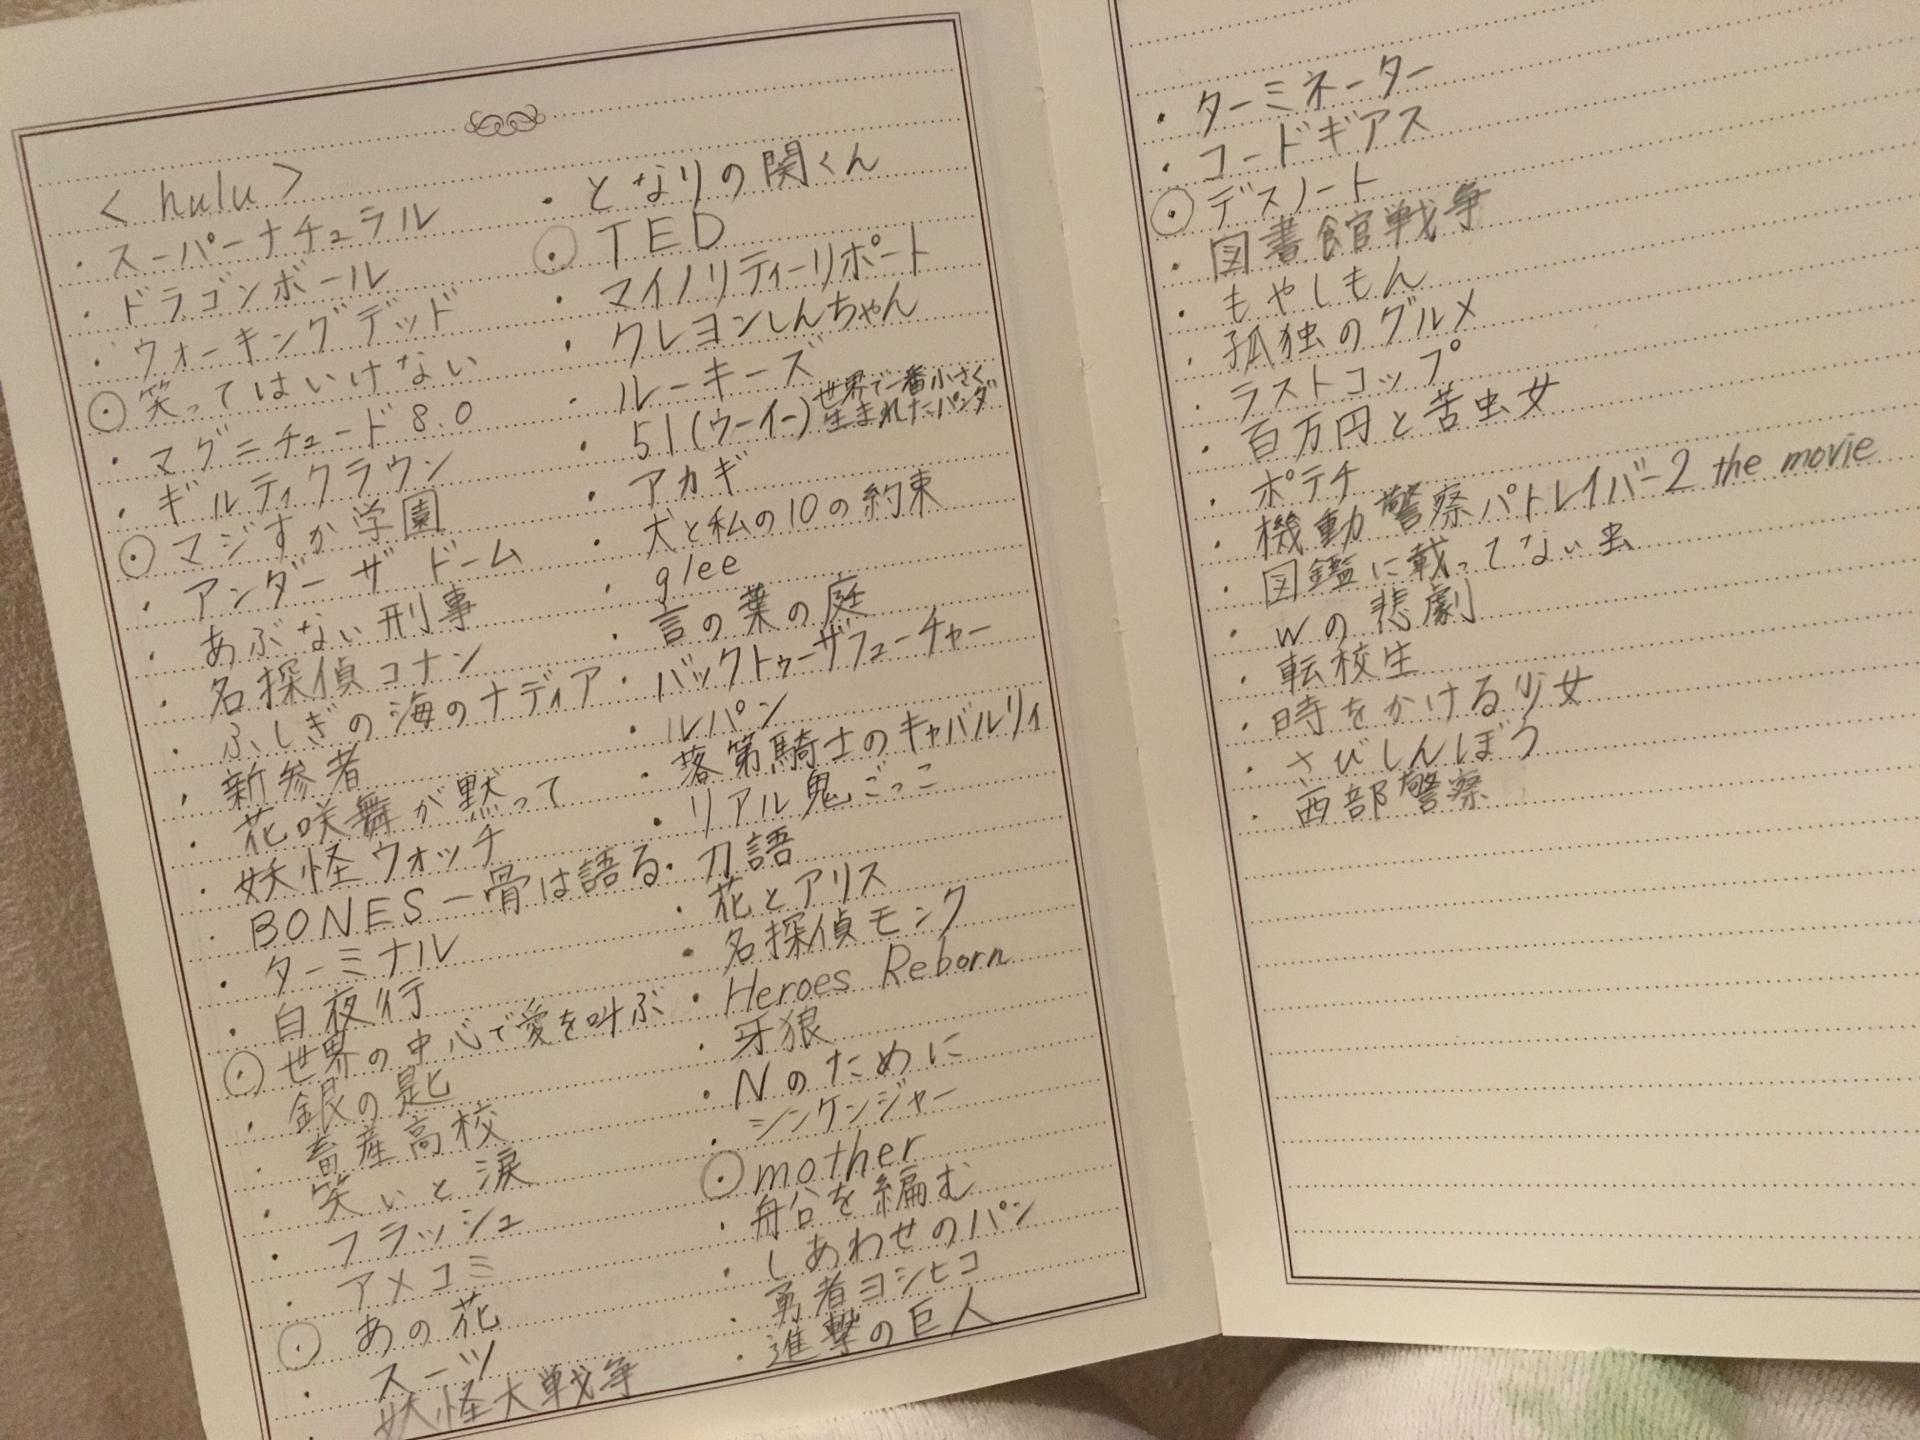 < hulu >
・スーパーナチュラル
・ドラゴンボール
・ウォーキングデッド
・笑ってはいけない
・マグニチュード8.0
・ギルティクラウン
・マジすか学園
・アンダー ザ ドーム
・あぶない刑事
・名探偵コナン
・ふしぎの海のナディア
・新参者
・花咲舞が黙って
・妖怪ウォッチ
・BONES-骨は語る
・ターミナル
・白夜行
・世界の中心で愛を叫ぶ
・銀の匙
・畜産高校
・笑いと涙
・フラッシュ
・アメコミ
・あの花
・スーツ
・妖怪大戦争
・となりの関くん
・TED
・マイノリティーリポート
・クレヨンしんちゃん
・ルーキーズ
・51(ウーイー)世界で一番小さく
生まれたパンダ
・アカギ
・犬と私の10の約束
・glee
・言の葉の庭
・バックトゥーザフューチャー
・ルパン
・落第騎士のキャバルリィ
・リアル鬼ごっこ
・刀語
・花とアリス
・名探偵モンク
・Heroes Reborn
・牙狼
・Nのために
・シンケンジャー
・mother
・舟を編む
・しあわせのパン
・勇者ヨシヒコ
・進撃の巨人
・ターミネーター
・コードギアス
・デスノート
・図書館戦争
・もやしもん
・孤独のグルメ
・ラストコップ
・百万円と苦虫女
・ポテチ
・機動警察パトレイバー2 the movie
・図鑑に載ってない虫
・Wの悲劇
・転校生
・時をかける少女
・さびしんぼう
・西部警察